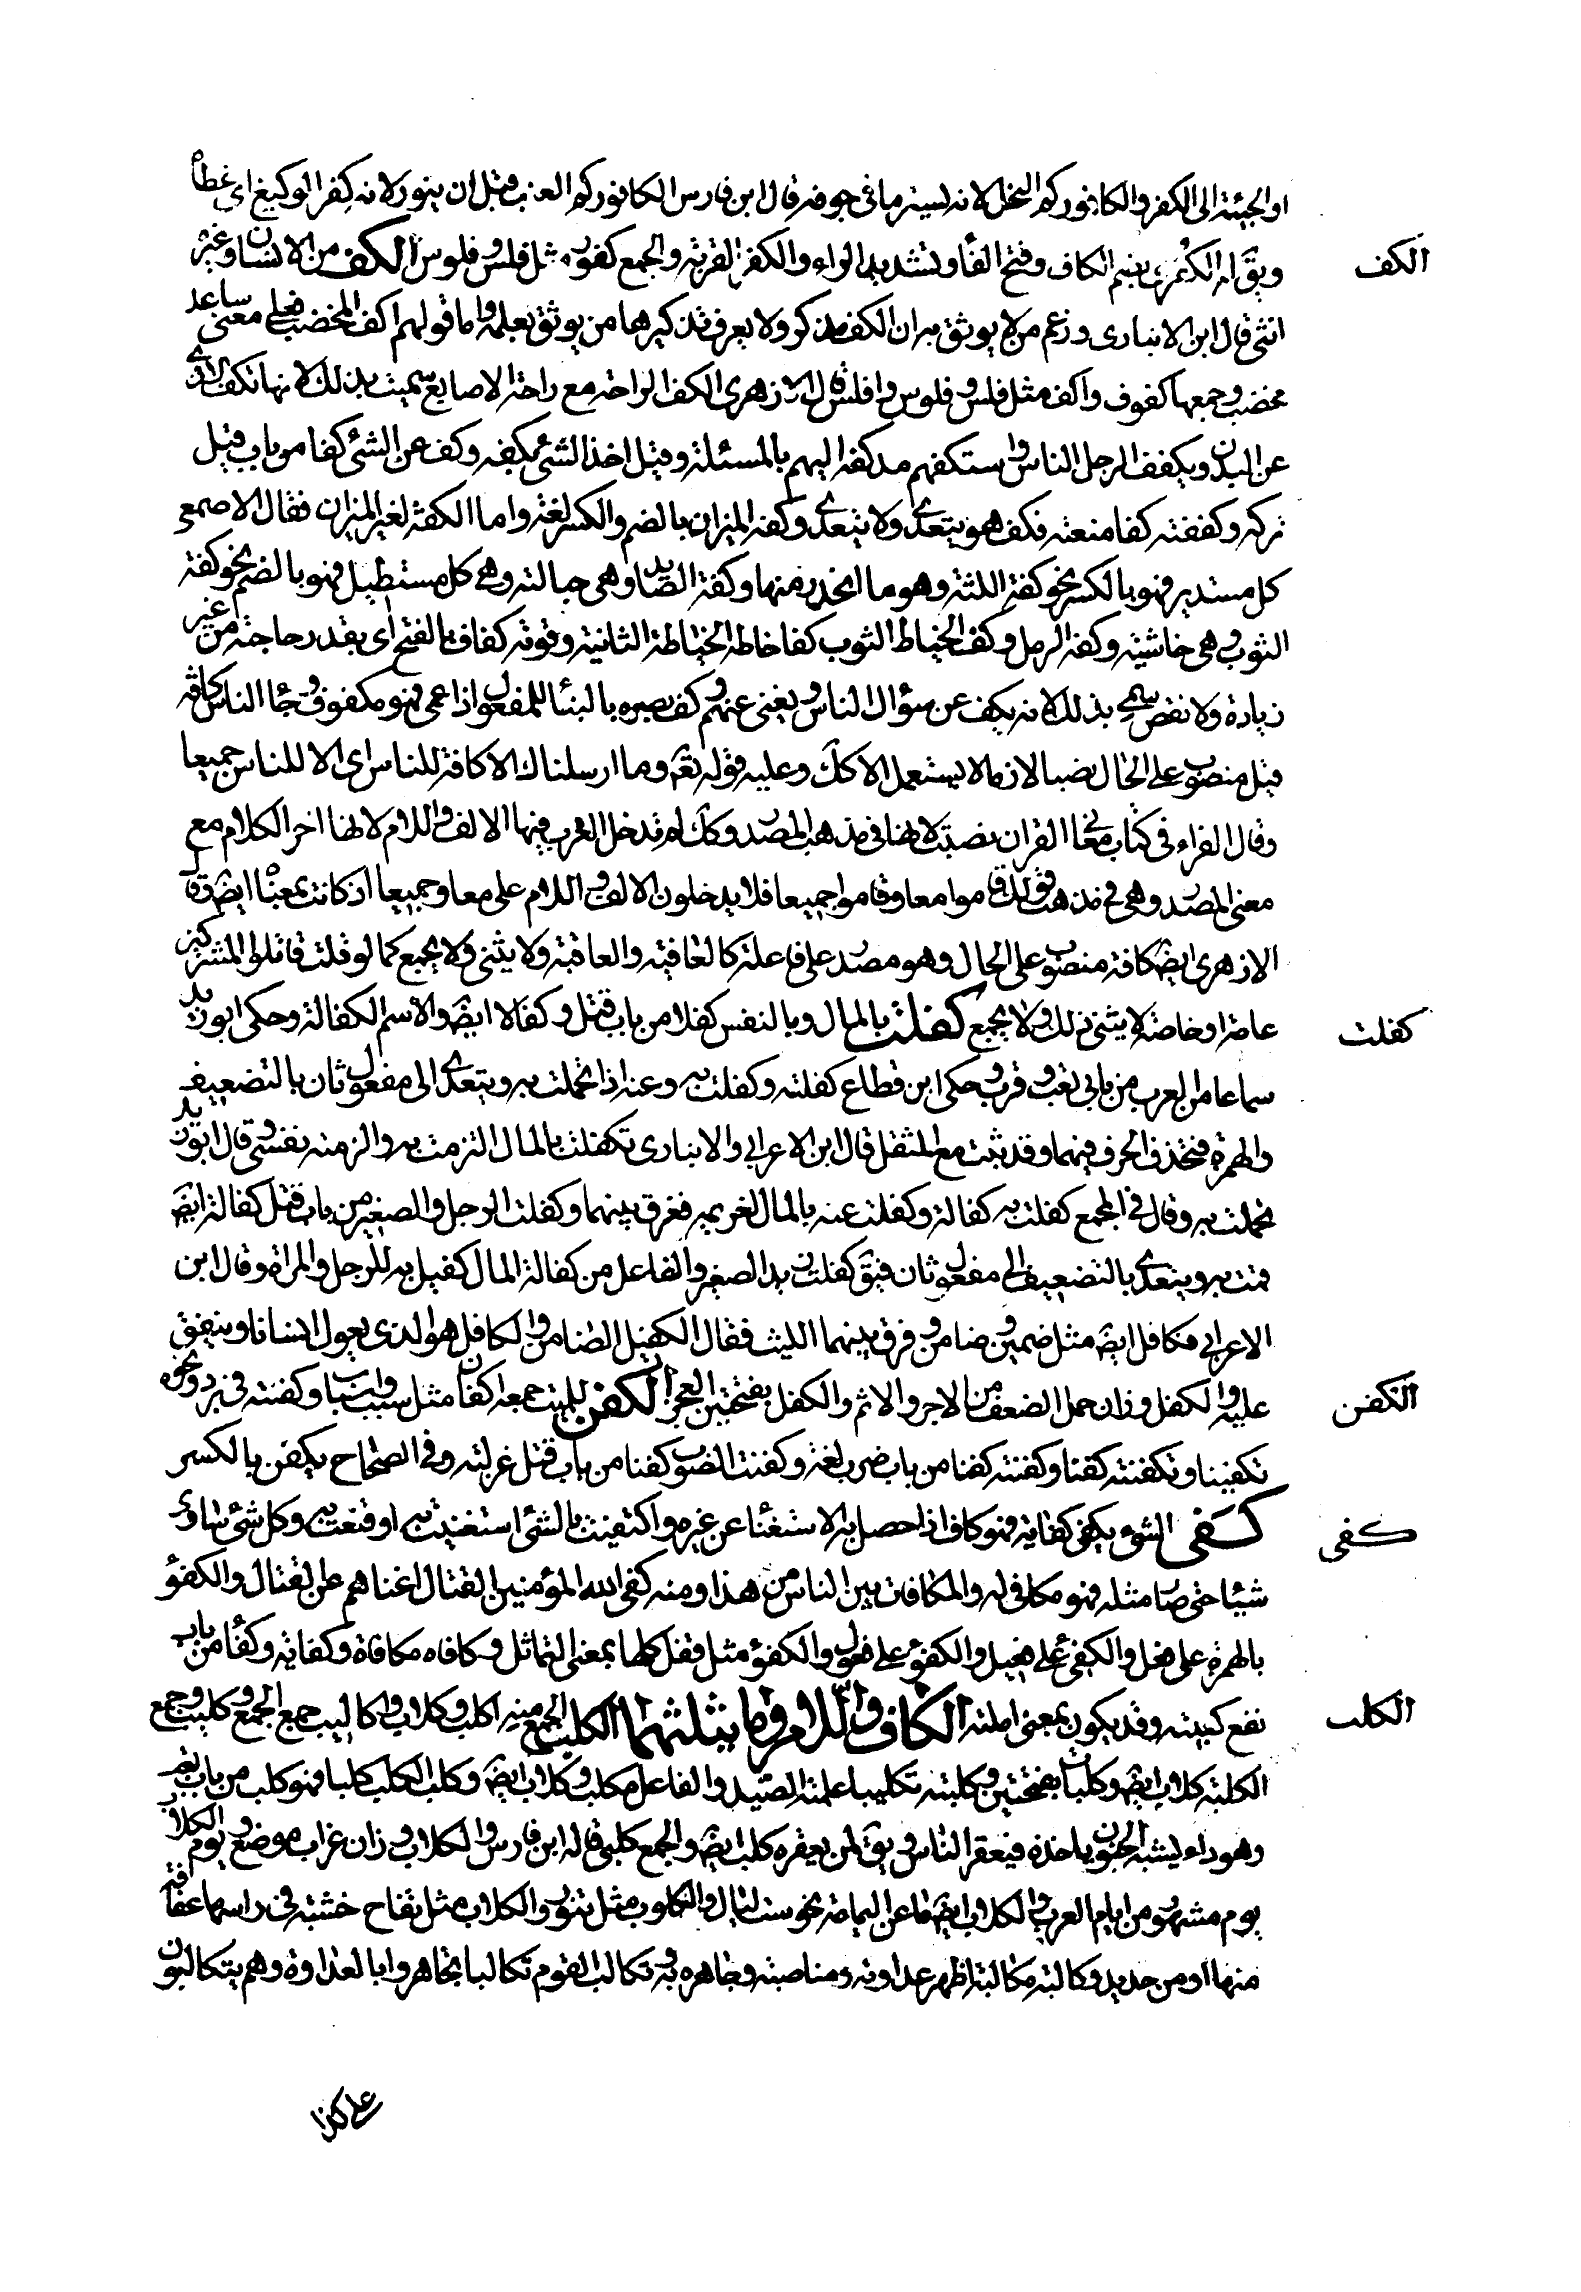 او الجيئة الى الكفر والكافور كم النخل لانه يستر ما فى جوفه قال ابن فارس الكافور كم العنب قبل ان ينور لانه كفر الوليع اى غطاه
ويق له الكفرى بضم الكاف وفتح الفا وتشديد الراء والكفر القرية والجمع كفور مثل فلس وفلوس الكف من الانسان وغيره
الكف
انثى قال ابن الانبارى وزعم من لا يوثق به ان الكف مذكر ولا يعرف تذكيرها من يوثق بعلمه واما قولهم اكف المخضب فعلى معنى ساعد
مخضب وجمعها كفوف واكف مثل فلس وفلوس وافلس قال الازهرى الكف الراحة مع راحة الاصابع سميت بذلك لانها تكف الاذى
عن البدن ويكفف الرجل الناس واستكفهم مد كفه اليهم بالمسئلة وقيل اخذ الشئ بكفه وكف عن الشئ كفا من باب قتل
تركه وكففته كفا منعته فكف هو يتعدى ولا يتعدى وكفة الميزان بالضم والكسر لغة واما الكفة لغير الميزان فقال الاصمعى
كل مستدير فهو بالكسر نحو كفة اللثة وهو ما انحدر منها وكفة الصايد وهى حبالته وهى كل مستطيل فهو بالضم نحو كفة
الثوب وهى حاشيته وكفة الرمل وكف الخياط الثوب كفا خاطه الخياطة الثانية وقوته كفاف بالفتح اى بقدر حاجته من غير
زيادة ولا نقص سمى بذلك لانه يكف عن سؤال الناس ويغنى عنهم وكف بصره بالبنا للمفعول اذا عمى فهو مكفوف وجا الناس كافة
قيل منصوب على الحال نصبا لازما لا يستعمل الا كك وعليه قوله تعه وما ارسلناك الا كافة للناس اى الا للناس جميعا
وقال الفراء فى كتاب معانى القران نصبت لانها فى مذهب المصدر وكك لم تدخل العرب فيها الالف واللام لانها اخر الكلام مع
معنى المصدر وهى فى مذهب قولك قاموا معا وقاموا جميعا فلا يدخلون الالف واللام على معا وجميعا اذ كانت بمعناها ايضه وقال
الازهرى ايضه كافة منصوب على الحال وهو مصدر على فاعلة كالعافية والعاقبة ولا يثنى ولا يجمع كما لو قلت قاتلوا المشركين
عامة او خاصة لا يثنى ذلك ولا يجمع كفلت بالمال وبالنفس كفلا من باب قتل وكفالا ايضه والاسم الكفالة وحكى ابو زيد
كفلت
سماعا من العرب من بابى تعب وقرب وحكى ابن قطاع كفلته وكفلت به وعنه اذا تحملت به ويتعدى الى مفعول ثان بالتضعيف
والهمزة فتحذف الحرف فيهما وقد يثبت مع المثقل قال ابن الاعرابى والانبارى تكفلت بالمال التزمت به والزمته نفسى وقال ابو زيد
تحملت به وقال فى المجمع كفلت به كفالة وكفلت عنه بالمال لغريمه ففرق بينهما وكفلت الرجل والصغير من باب قتل كفالة ايضه
قمت به ويتعدى بالتضعيف الى مفعول ثان فيق كفلت زيدا الصغير والفاعل من كفالة المال كفيل به للرجل والمراة وقال ابن
الاعرابى وكافل ايضه مثل ضمين وضامن وفرق بينهما الليث فقال الكفيل الضامن والكافل هو الذى يعول انسانا وينفق
عليه والكفل وزان حمل الضعف من الاجر والاثم والكفل بفتحتين العجز الكفن للميت جمعه اكفان مثل سبب واسباب وكفنته فى برد ونحوه
الكفن
تكفينا وتكفنته كفنا وكفنته كفنا من باب ضرب لغة وكفنت الصوف كفنا من باب قتل غزلته وفى الصحاح يكفن بالكسر
كفى الشئ يكفى كفاية فهو كاف اذا حصل به الاستغنا عن غيره واكتفيت بالشئ استغنيت به او قنعت به وكل شئ ساوى
كفى
شيئا حتى صار مثله فهو مكافى له والمكافات بين الناس من هذا ومنه كفى الله المؤمنين القتال اغناهم عن القتال والكفؤ
بالهمزة على فعل والكفئ على فعيل والكفؤ على فعول والكفؤ مثل قفل كلها بمعنى التماثل وكافاه مكافاة وكفاية وكفأ من باب
نفع كببته وقد يكون بمعنى املته الكاف واللام وما يثلثهما الكلب الجمع منه اكلب وكلاب واكاليب جمع الجمع وكليب وجمع
الكلب
الكلبة كلاب ايضه وكلبات بفتحتين وكلبته تكليبا علمته الصيد والفاعل مكلب وكلاب ايضه وكلب الكلب كلبا فهو كلب من باب تعب
وهو داء يشبه الجنون ياخذه فيعقر الناس ويق لمن يعقره كلب ايضه والجمع كلبى قاله ابن فارس والكلاب وزان غراب موضع ويوم الكلاب
يوم مشهور من ايام العرب والكلاب ايضه ماء عن اليمامة نحو ست ليال والكلوب مثل تنور والكلاب مثل تفاح خشبة فى راسها عقافة
منها او من حديد وكالبته مكالبة اظهر عداوته ومناصبته وجاهره به وتكالب القوم تكالبا تجاهروا بالعداوة وهم يتكالبون
على كذا